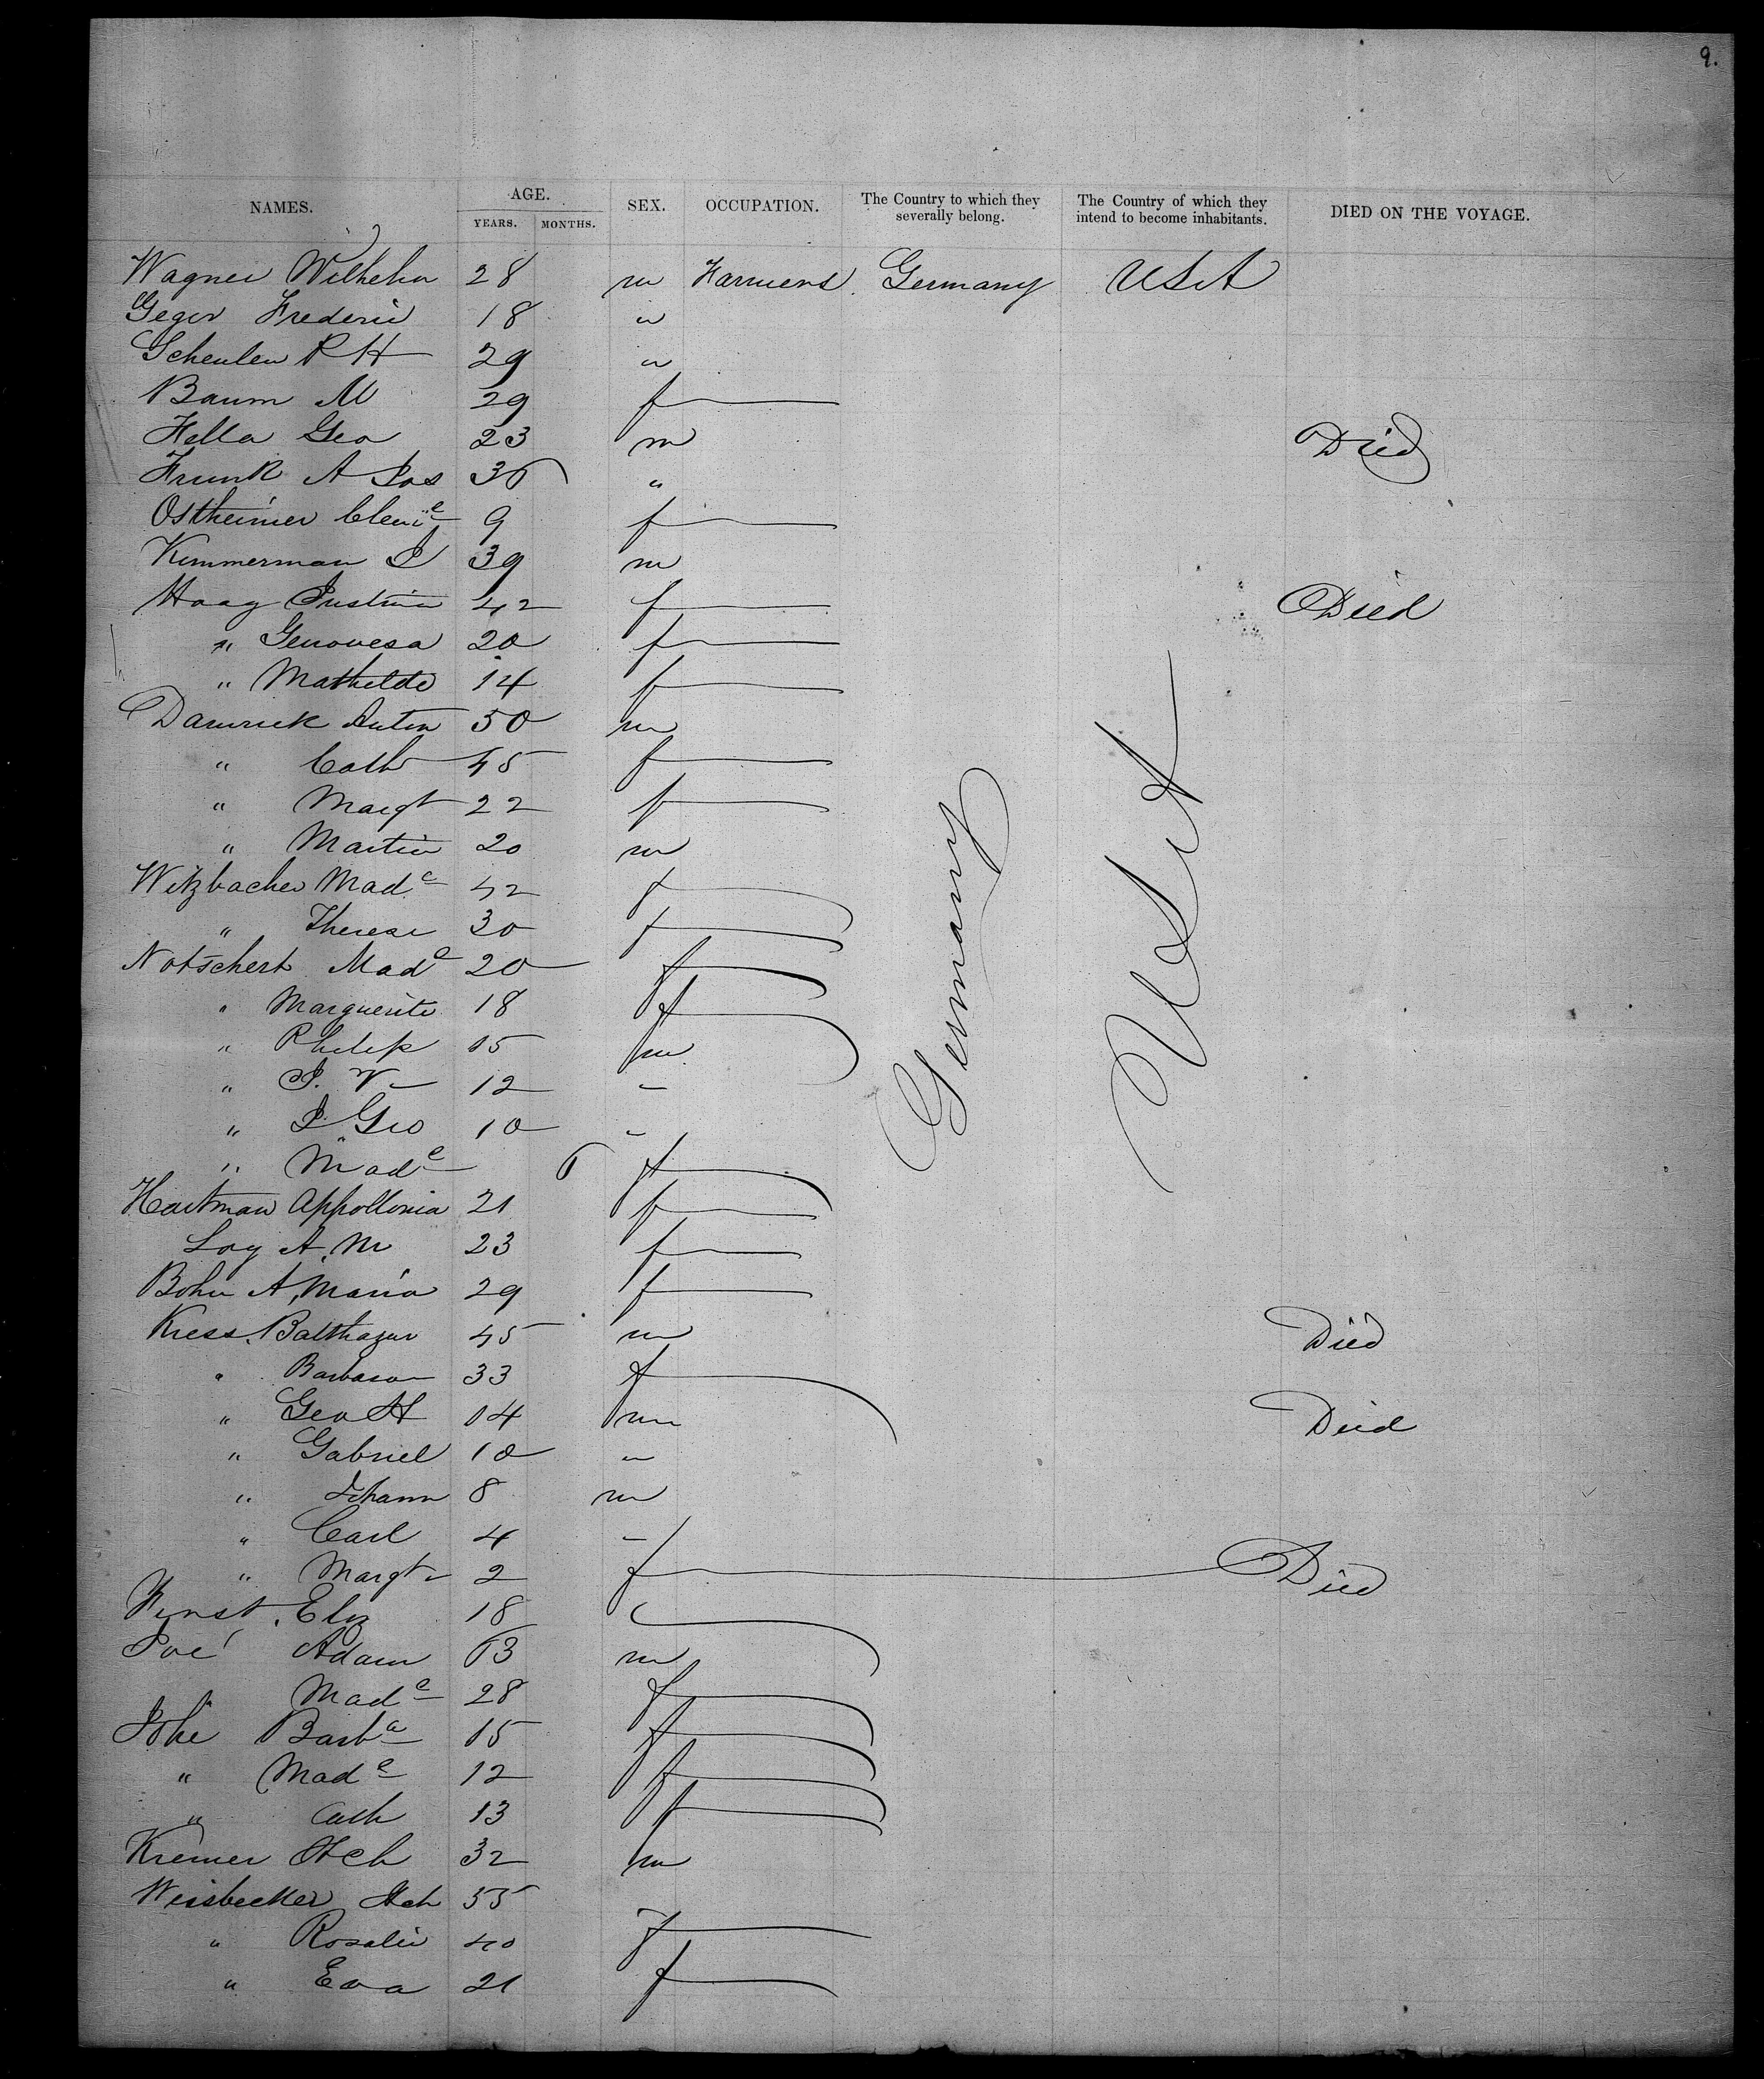 9.
NAMES. AGE. YEARS. MONTHS. SEX. OCCUPATION. The Country to which they severally belong. The Country of which they intend to become inhabitants. DIED ON THE VOYAGE.
Wagner Wilhelm 28 m Farmers Germany USA
Geger Frederic 18 "
Scheulen P H 29 "
Baum M 29 f
Hella Geo 23 m Died
Frunk A Jos 36 "
Ostheimer Clem 9 f
Kimmerman J 39 m
Haag Justina 42 f Died
" Genovesa 20 f
" Mathilde 14 f
Darurick Anton 50 m
" Cath 45 f
" Margt 22 f
" Martin 20 m
Witzbacher Made 42 f
" Therese 30 f
Notschert Made 20 f
" Marguerite 18 f
" Philip 15 m
" J. V 12 "
" J Geo 10 "
" Made 6 f
Hartman Appollonia 21 f
Loy A. M 23 f
Bohn A, Maria 29 f
Kress. Balthazar 45 m Died
" Barbara 33 f
" Geo H 14 m Died
" Gabriel 10 "
" Johann 8 m
" Carl 4 "
" Margt 2 f Died
Eliz 18
Adam 63 m
Made 28 f
Barba 15 f
" Made 12 f
" Cath 13 f
Kremer Hch 32 m
Weisbecker Hch 55
" Rosalie 40 f
" Eva 21 f
Germany
USA